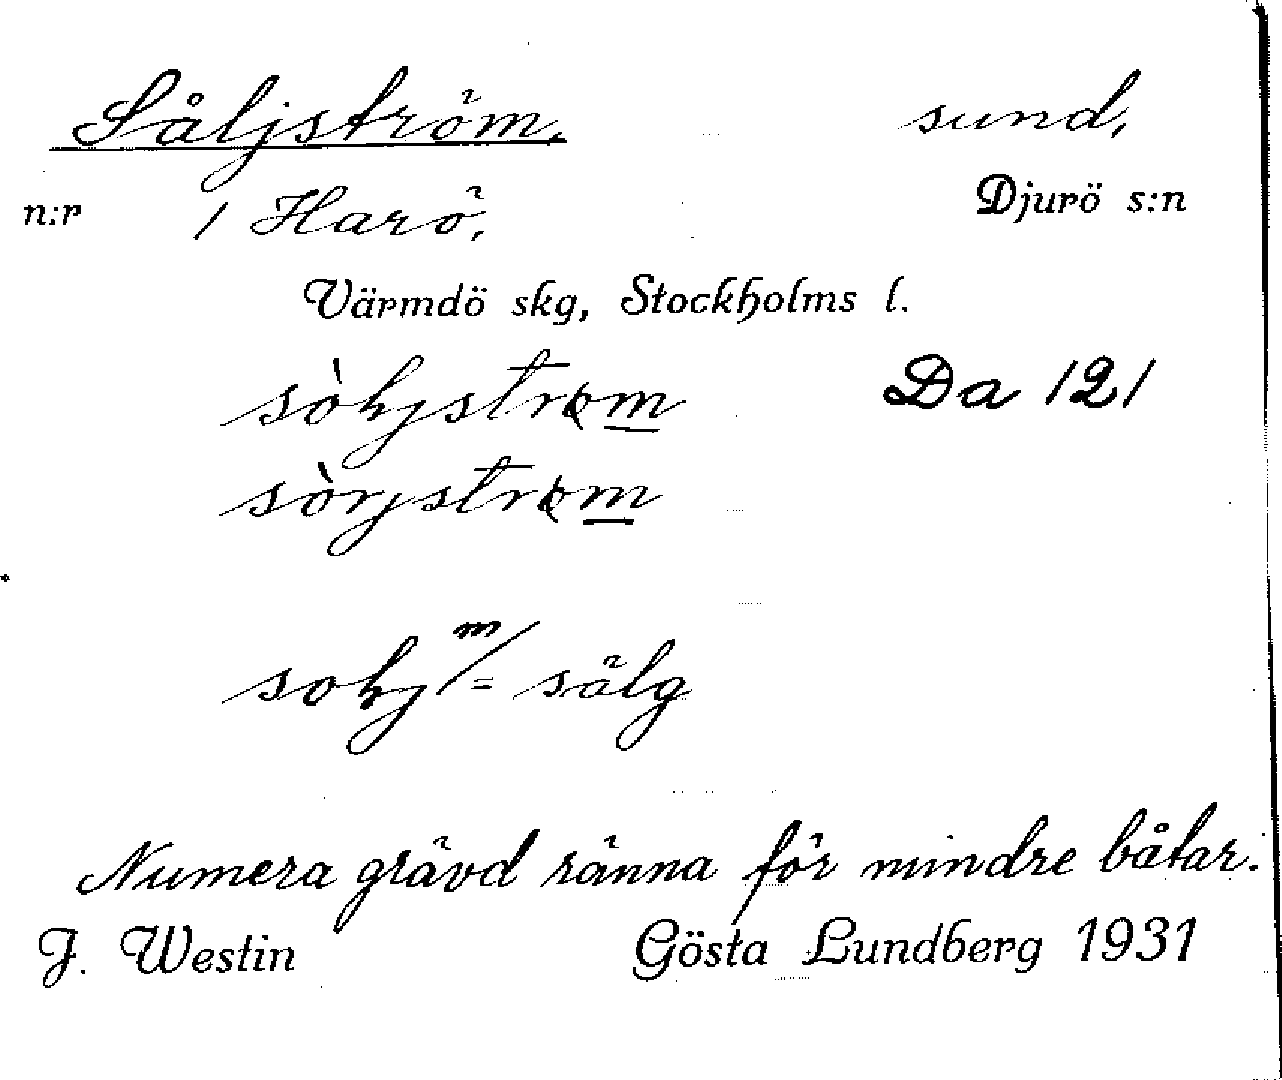 Såljström, sund,
n:r 1 Harö, Djurö s:n
Värmdö skg, Stockholms l.
Da 121
= sälg
Numera grävd ränna för mindre båtar.
J. Westin Gösta Lundberg 1931